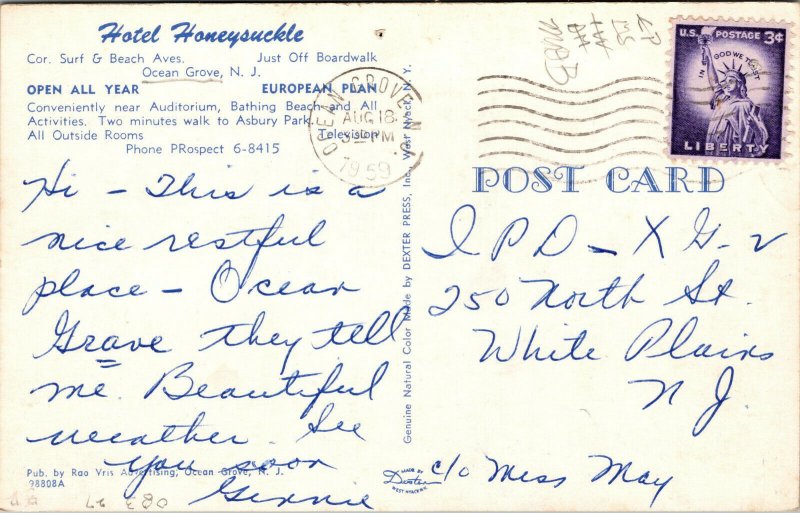 Hotel Honeysuckle
Cor. Surf & Beach Aves. Just Off Boardwalk
Ocean Grove, N. J.
OPEN ALL YEAR EUROPEAN PLAN
Conveniently near Auditorium, Bathing Beach and All
Activities. Two minutes walk to Asbury Park.
All Outside Rooms Television
Phone PRospect 6-8415
Hi - This is a
nice restful
place - Ocean
Grave they tell
me. Beautiful
weather. See
you soon
Ginnie
Pub. by Rao Vris Advertising, Ocean Grove, N. J.
98808A
Genuine Natural Color Made by DEXTER PRESS, Inc., West Nyack, N. Y.
OCEAN GROVE N.J.
AUG 18
3 - PM
1959
U.S. POSTAGE 3¢
IN GOD WE TRUST
LIBERTY
POST CARD
I P D - X G - 2
250 North St.
White Plains
N J.
c/o Miss May
MADE BY
Dexter
WEST NYACK N.Y.